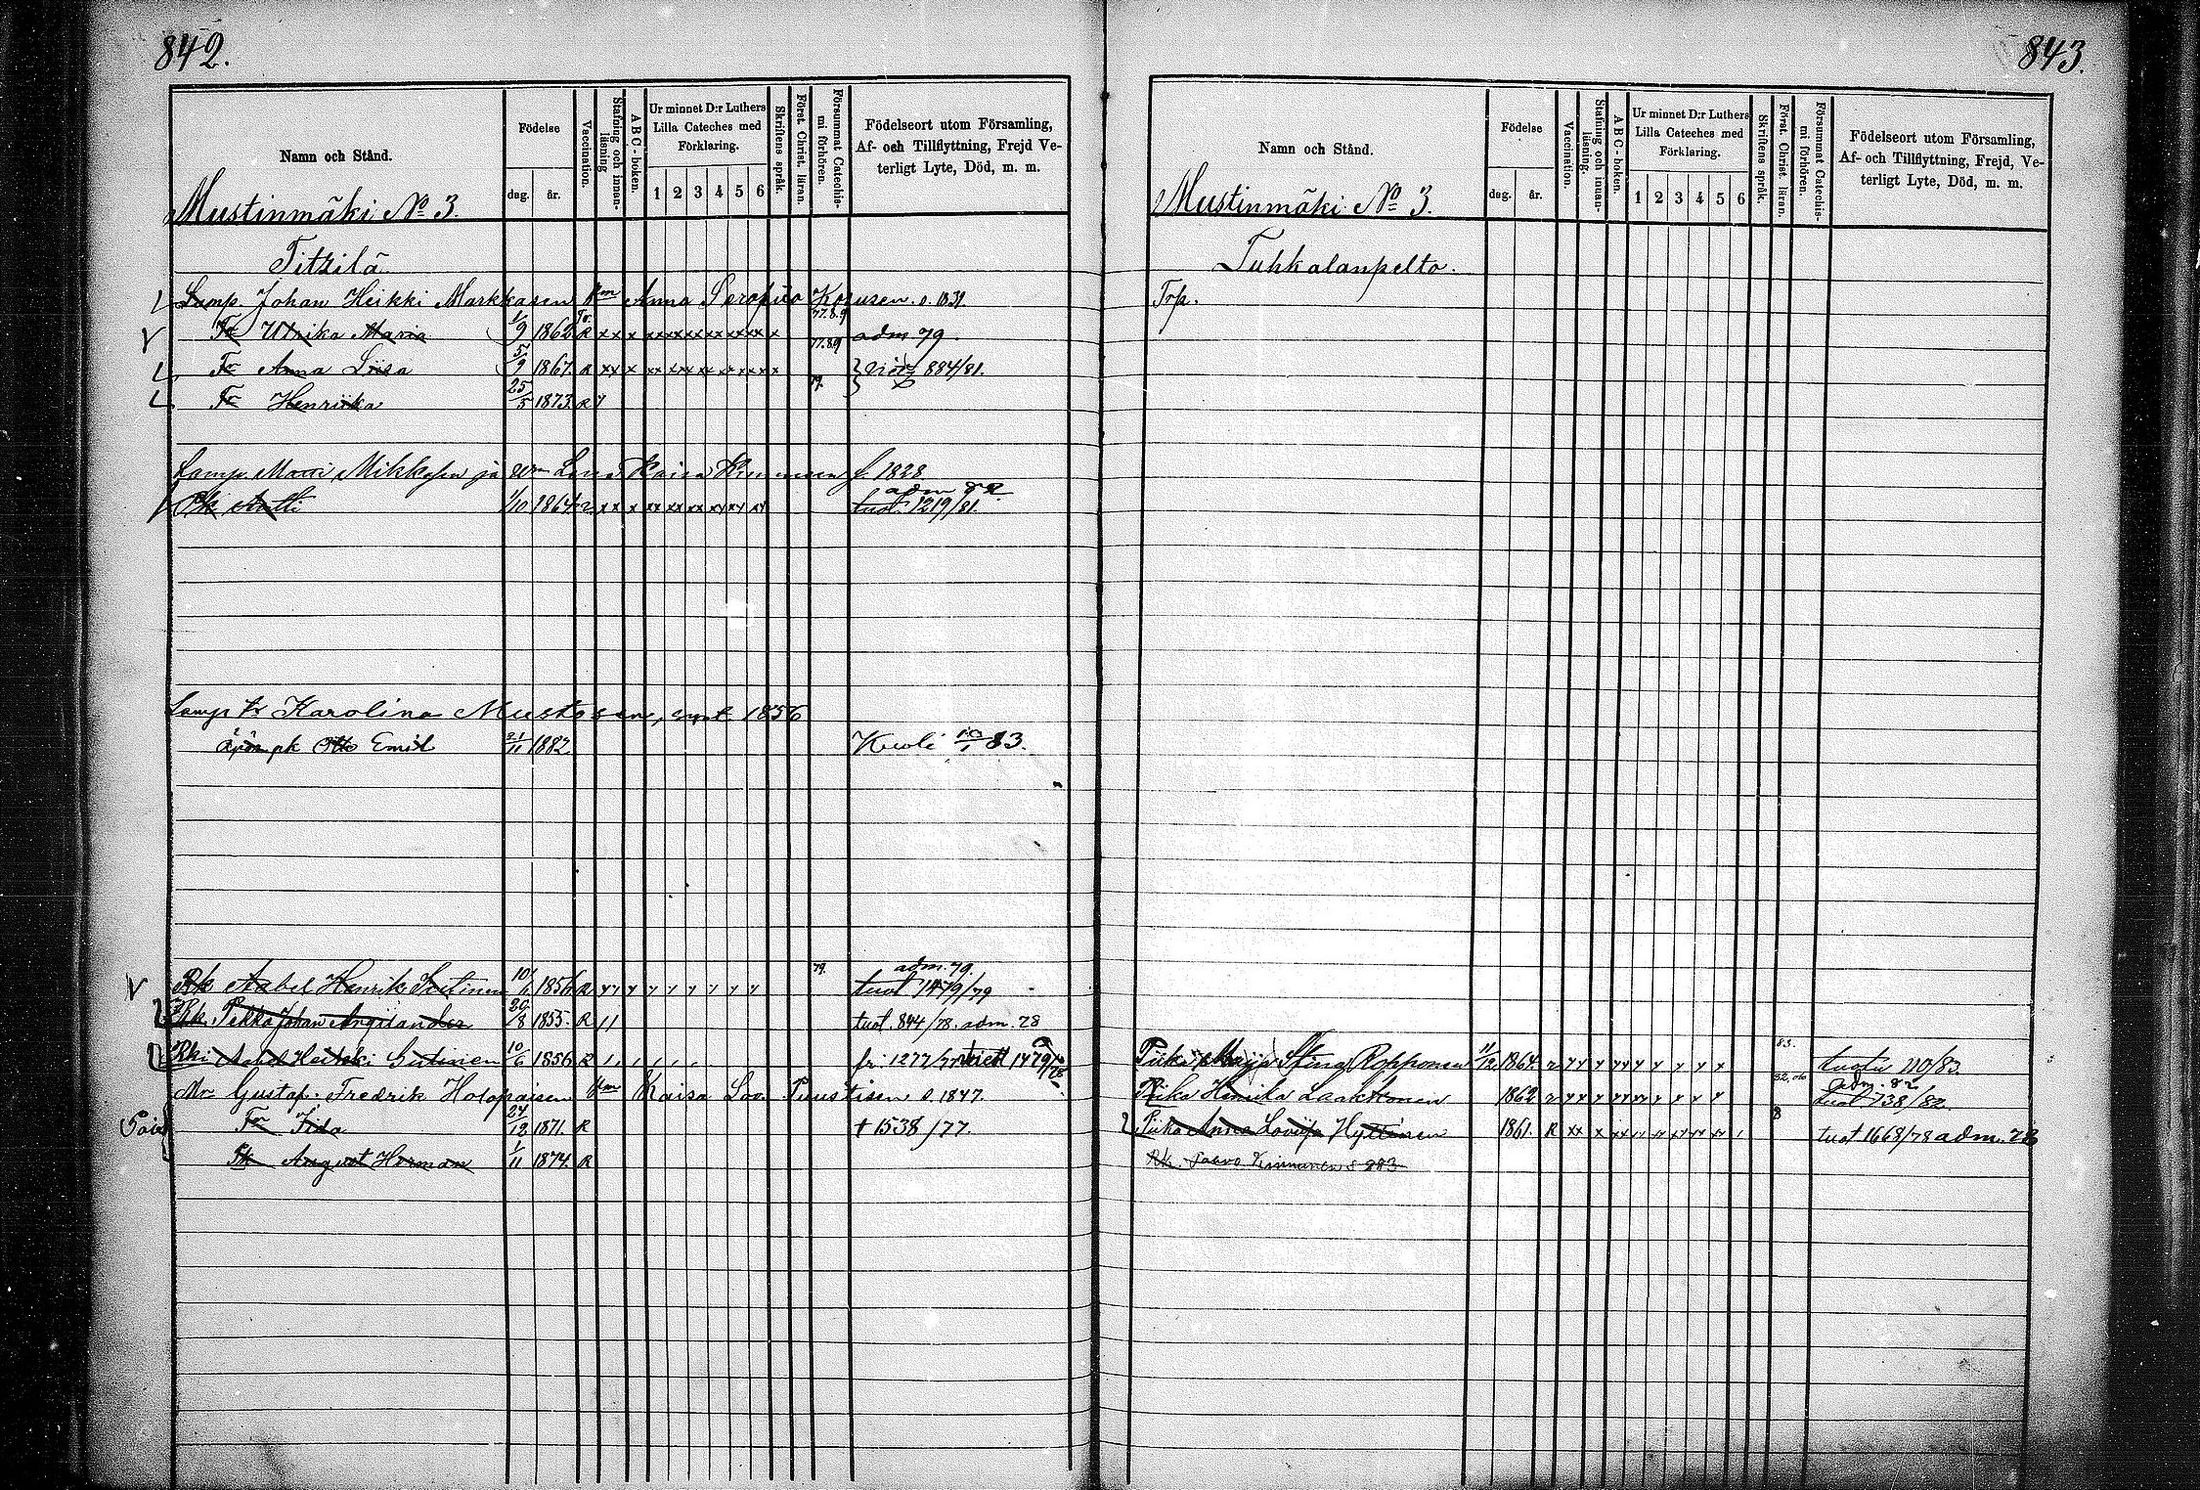 842.
Namn och Stånd.
Födelse
dag. år.
Vaccination.
Stafning och innan-läsning
ABC-boken.
Ur minnet D:r Luthers Lilla Cateches med Förklaring.
1 2 3 4 5 6
Skriftens språk.
Först. Christ. läran.
Försummat Catechis-mi förhören.
Födelseort utom Församling,
Af- och Tillflyttning, Frejd Ve-
terligt Lyte, Död, m. m.
Mustinmäki No 3.
Titzilä
Lamp. Johan Heikki Markkasen Anna Kosusen s. 1839
Tr Ulrika Maria 1/9 1862 R xx x xx xx xx xx xx xx x 77.8.9 adm 79.
Tr Anna Liisa 5/9 1867. R xx x xx xx xx xx xx xx x 77.89 884/81.
Tr Henriika 25/5 1873. R
Lamp. Matti Mikkosen ja Kaisa f. 1828
adm 82
Pk Antti 1/10 1864 xx x xx xx xx xx xx xx tuol. 1219/81.
Lamp tr Karolina Mustosen, synt. 1856
Äpär. pk Otto Emil 21/11 1882 Kuoli 10/1 83.
adm. 79.
Rk Aabel Henrik 1856 R 79. tuot 1479/79
Rk. Pekka Johan Angelander 20/8 1855. R tuot. 844/78. adm. 78
Rki Aabel Heikki Sutinen 10/6 1856 R fr. 1277/77
Mr. Gustaf. Fredrik Holopaisen Kaisa Puustisen s. 1847.
Tr Iida 24/12 1871. R + 1538/77.
Pk August Herman 1/11 1874. R
843.
Namn och Stånd.
Födelse
dag. år.
Vaccination.
Stafning och innan-läsning.
ABC-boken.
Ur minnet D:r Luthers Lilla Cateches med Förklaring.
1 2 3 4 5 6
Skriftens språk.
Först. Christ. läran.
Försummat Catechis-mi förhören.
Födelseort utom Församling,
Af- och Tillflyttning, Frejd, Ve-
terligt Lyte, Död, m. m.
Mustinmäki No 3.
Tuhkalanpelto.
Trp.
Piika Maija Stina Ropponen 11/12 1864. 83. tuotu 110/83.
Piika Henrika Laakkonen 1862 adm. 82 tuot 738/82.
Piika Anna Loviisa Hyttinen 1861. R xx x tuot 1668/78 adm. 78
Rk. Paavo Kinnunen s 883